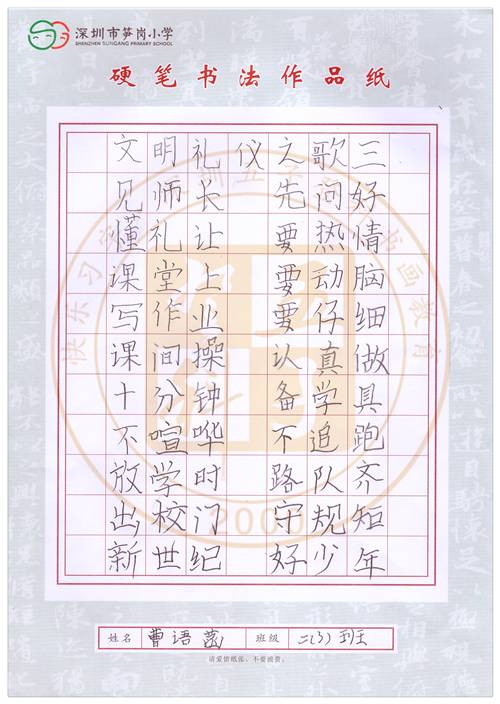 深圳市笋岗小学
SHENZHEN SUNGANG PRIMARY SCHOOL
硬笔书法作品纸
文明礼仪之歌三
见师长 先问好
懂礼让 要热情
课堂上 要动脑
写作业 要仔细
课间操 认真做
十分钟 备学具
不喧哗 不追跑
放学时 路队齐
出校门 守规短
新世纪 好少年
姓名 曹语菡 班级 二(3)班
请爱惜纸张、不要浪费。